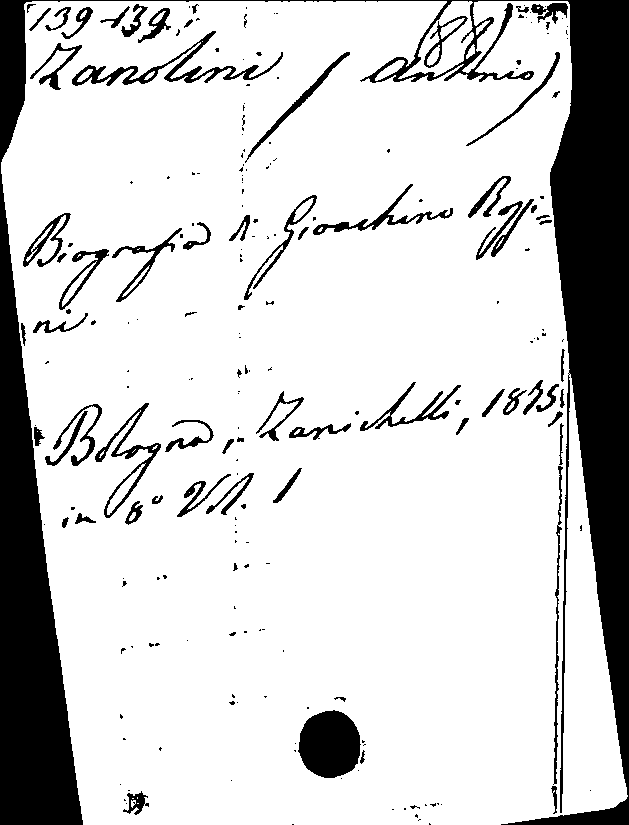 139-139. (88)
Zanolini (Antonio).
Biografia di Gioachino Rossi=
ni.
Bologna, Zanichelli, 1875,
in 8° Vol. 1